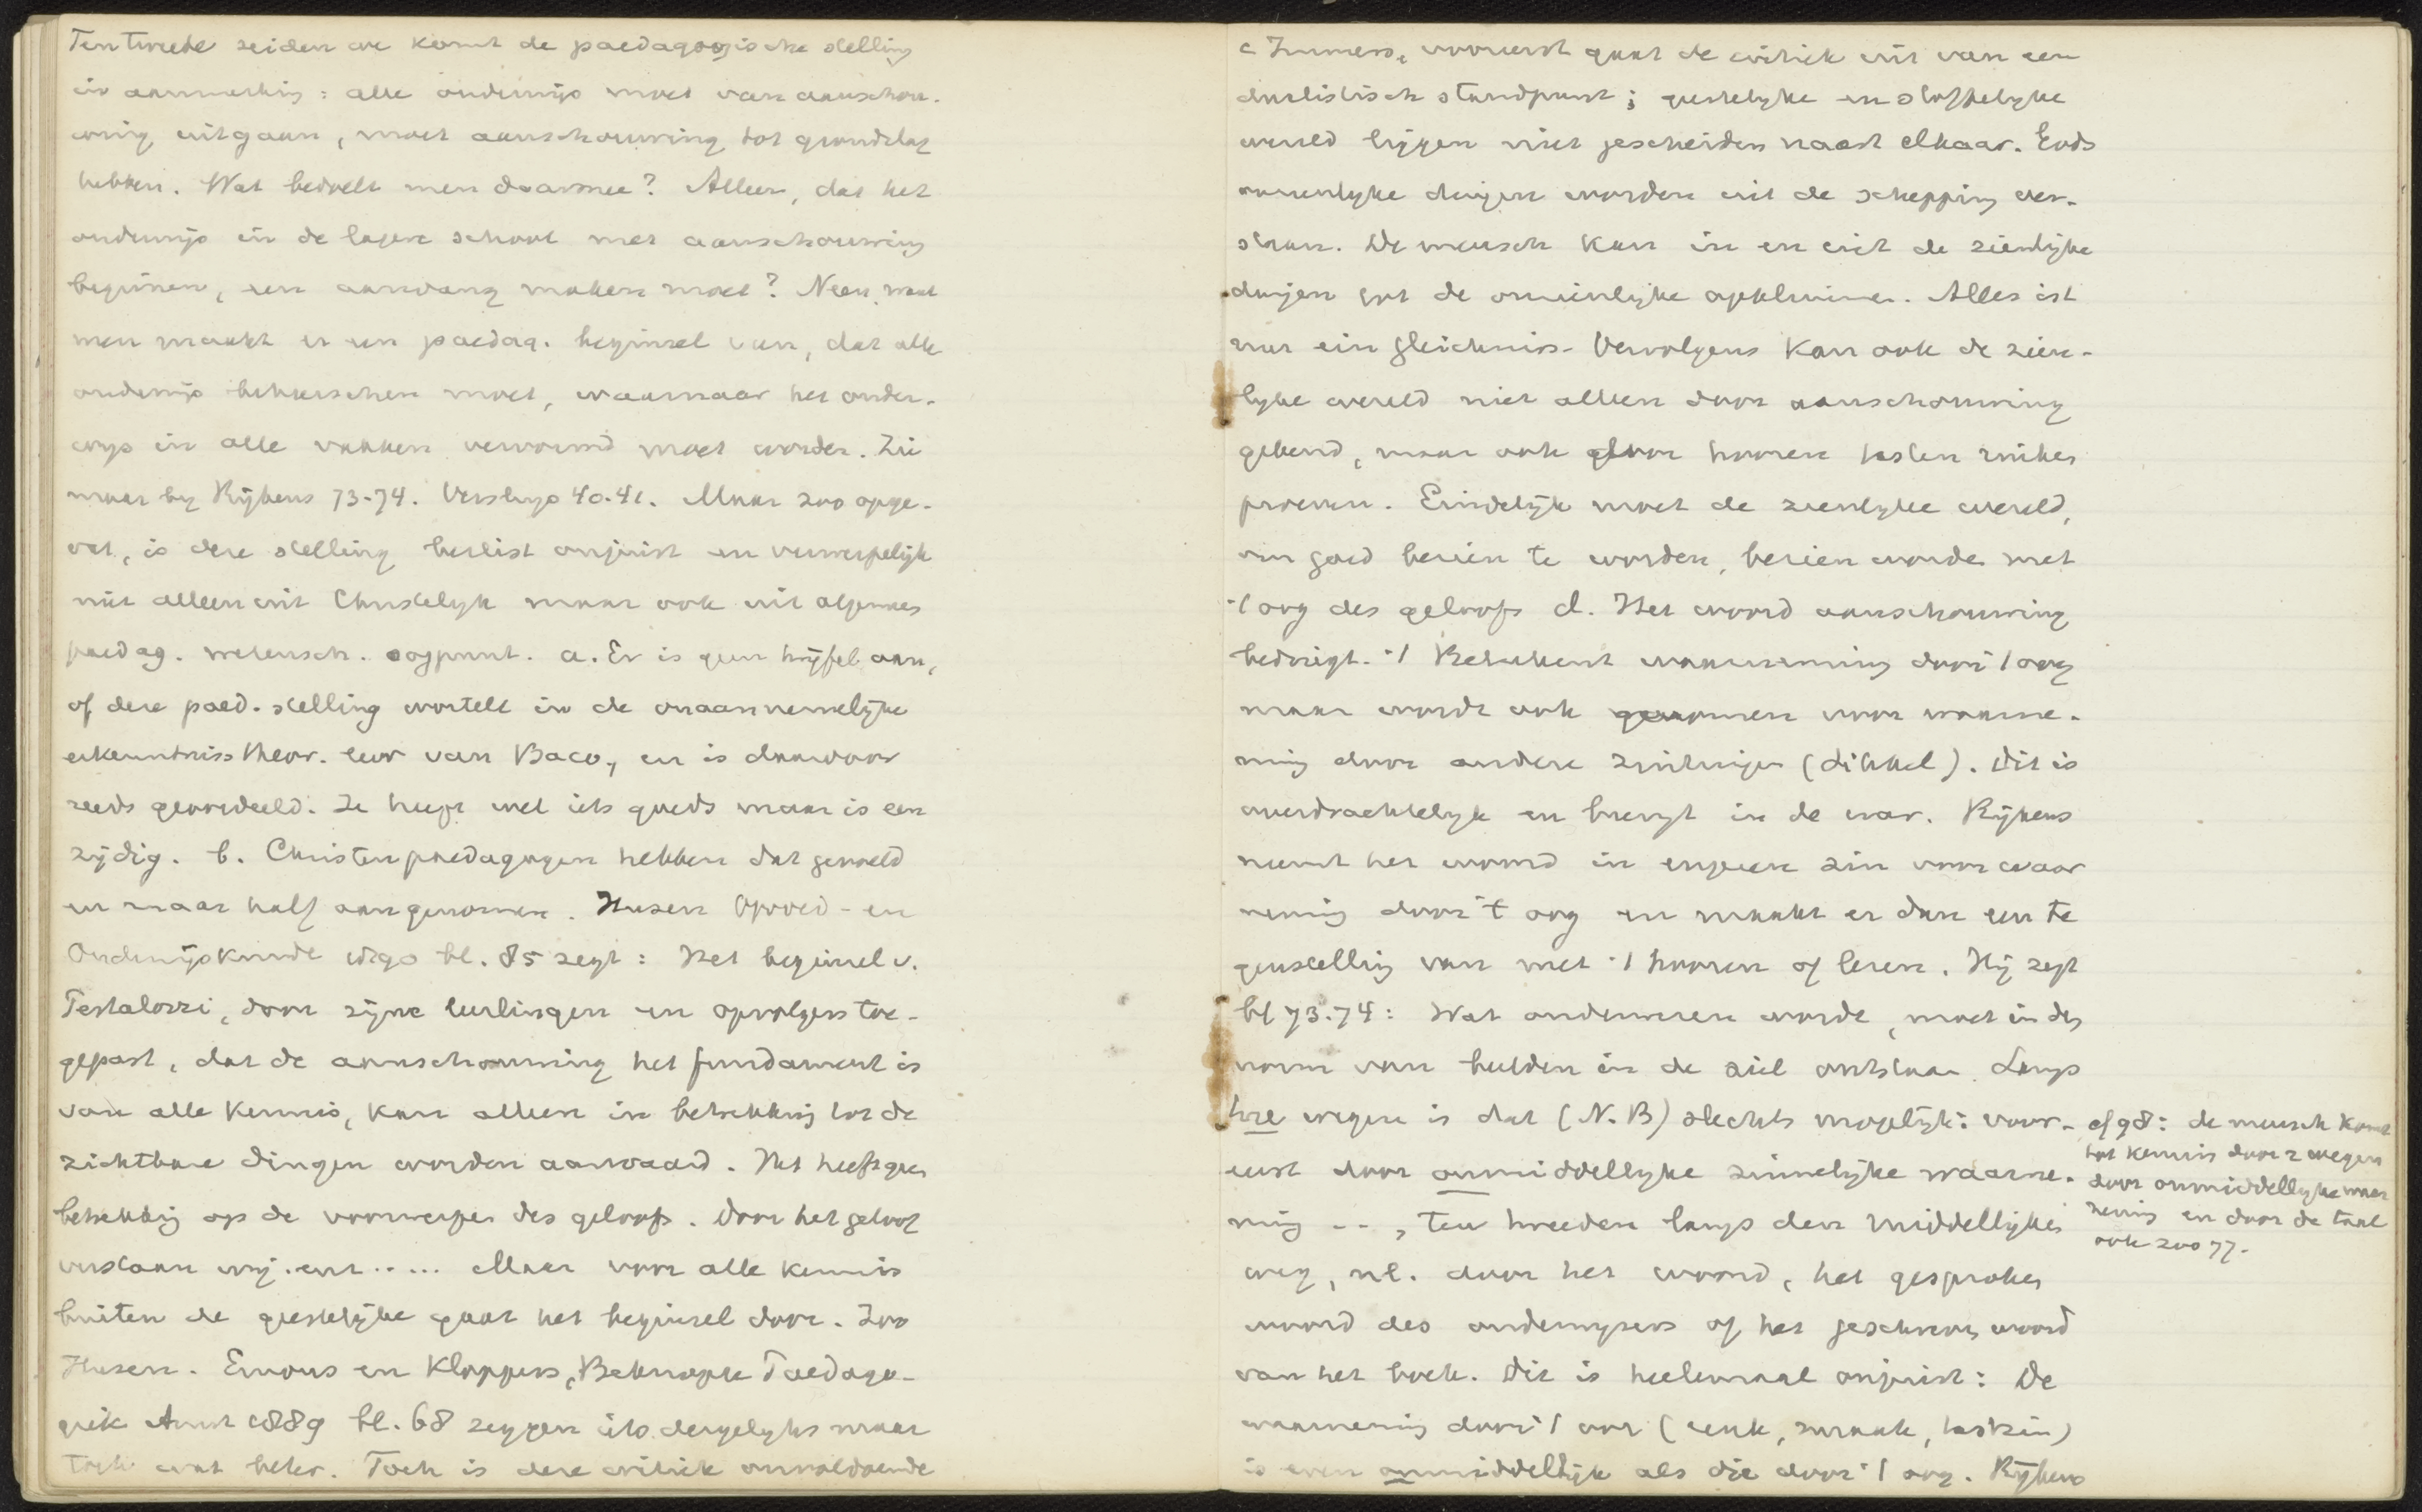 Ten tweede zeiden we komt de paedagogische stelling
in aanmerking: alle onderwijs moet van aanschou-
wing uitgaan, moet aanschouwing tot grondslag
hebben. Wat bedoelt men daarmee? Alleen, dat het
onderwijs in de lagere school met aanschouwing
beginnen, een aanvang maken moet? Neen, want
men maakt er een paedag. beginsel van, dat alle
onderwijs beheerschen moet, waarnaar het onder-
wijs in alle vakken vervormd moet worden. Zie
maar by Rijkens 73-74. Versluys 40-41. Maar zoo opge-
vat, is deze stelling beslist onjuist en verwerpelijk
niet alleen uit Christelyk maar ook uit algemeen
paedag. wetensch. oogpunt. a. Er is geen twijfel aan,
of deze paed. stelling wortelt in de onaannemelijke
erkenntniss theor. leer van Baco, en is daardoor
reeds geoordeeld. Ze heeft wel iets goeds maar is een
zijdig. b. Christenpaedagogen hebben dat gevoeld
en maar half aangenomen. Husen Opvoed- en
Onderwijskunde bl. 85 zegt: Het beginsel v.
Pestalozzi, door zijne leerlingen en opvolgers toe-
gepast, dat de aanschouwing het fundament is
van alle kennis, kan alleen in betrekking tot de
zichtbare dingen worden aanvaard. Het heeft geen
betrekking op de voorwerpen des geloofs. Door het geloof
verstaan wij enz ..... Maar voor alle kennis
buiten de geestelijke gaat het beginsel door. Zoo
Husen. Emous en Kloppers, Beknopte Paedago-
giek Amst 1889 bl. 68 zeggen iets dergelyks maar
toch wat beter. Toch is deze critiek onvoldoende
c Immers, vooreerst gaat de critiek uit van een
dualistisch standpunt; geestelyke en stoffelyke
wereld liggen niet gescheiden naast elkaar. Gods
onzienlyke dingen worden uit de schepping ver-
staan. De mensch kan in en uit de zienlijke
dingen tot de onzienlijke opklimmen. Alles ist
nur ein Gleichniss. Vervolgens kan ook de zien-
lyke wereld niet alleen door aanschouwing
gekend, maar ook door hooren tasten ruiken
proeven. Eindelijk moet de zienlyke wereld,
om goed bezien te worden, bezien worden met
't oog des geloofs d. Het woord aanschouwing
bedriegt. 't Beteekent waarneming door 't oog
maar wordt ook genomen voor waarne-
ming door andere zintuigen (Dittel). Dit is
overdrachtelyk en brengt in de war. Rijkens
neemt het woord in engeren zin voor waar
neming door 't oog en maakt er dan een te
genstelling van met 't hooren of lezen. Hij zegt
bl 73-74: Wat onderwezen wordt, moet in den
vorm van beelden in de ziel ontstaan. Langs
twee wegen is dat (N.B) slechts mogelijk: voor-
eerst door onmiddellyke zinnelijke waarne-
ming --, ten tweeden langs den middellijken
weg, nl. door het woord, het gesproken
woord des onderwyzers of het geschreven woord
van het boek. Dit is heelemaal onjuist: De
waarneming door 't oor (reuk, smaak, tastzin)
is even onmiddellijk als die door 't oog. Rijkens
cf 98: de mensch komt
tot kennis door 2 wegen
door onmiddellyke waar
neming en door de taal
ook zoo 77.